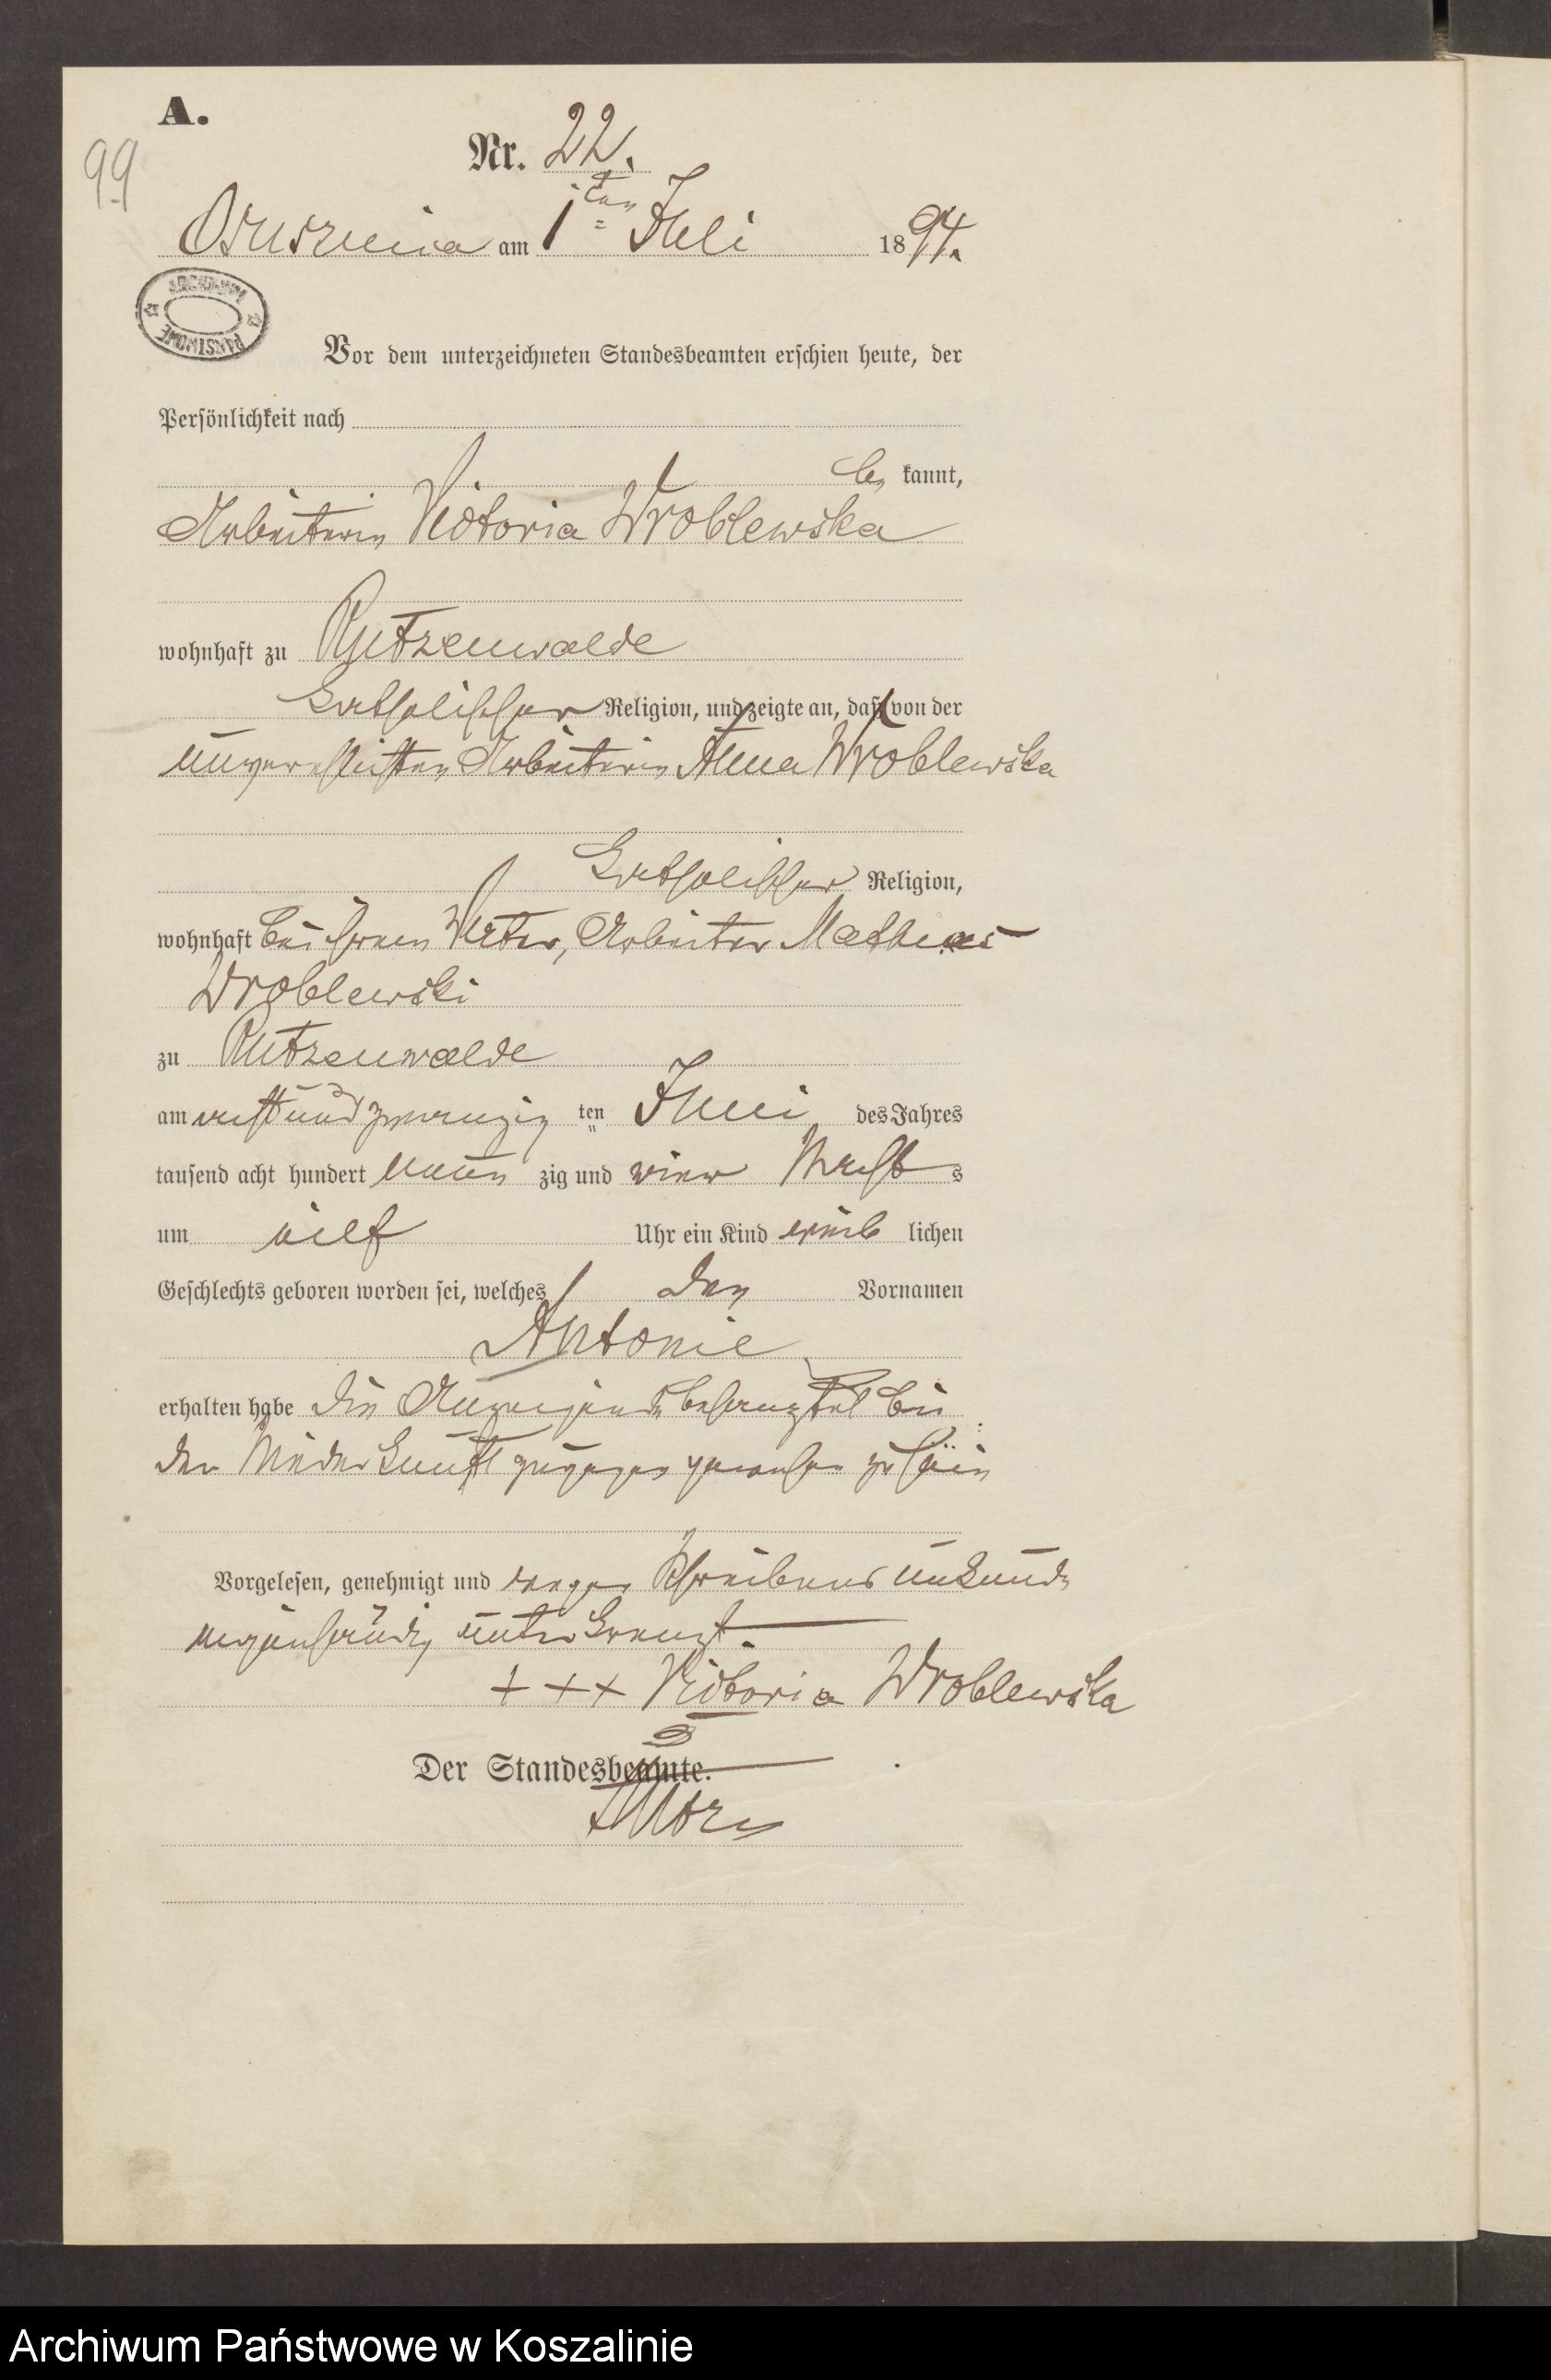 A.
99
Nr. 22.
Osusznica am 1ten Juli 1894.
ARCHIWUM PAŃSTWOWE
Vor dem unterzeichneten Standesbeamten erschien heute, der
Persönlichkeit nach
be kannt,
Arbeiterin Victoria Wroblewska
wohnhaft zu Rutzenwalde
katholischer Religion, und zeigte an, daß von der
unverehlichten Arbeiterin Anna Wroblewska
katholischer Religion,
wohnhaft bei ihrem Vater, Arbeiter Mathias
Wroblewski
zu Rutzenwalde
am acht und zwanzig ten Juni des Jahres
tausend acht hundert neun zig und vier Nacht s
um eilf Uhr ein Kind weib lichen
Geschlechts geboren worden sei, welches den Vornamen
Antonie
erhalten habe die Anzeigende behauptet bei
der Niederkunft zugegen gewesen zu sein
Vorgelesen, genehmigt und wegen Schreibens unkunde
eigenhändig unterkreuzt.
+ + + Victoria Wroblewska
Der Standesbeamte.
Archiwum Państwowe w Koszalinie